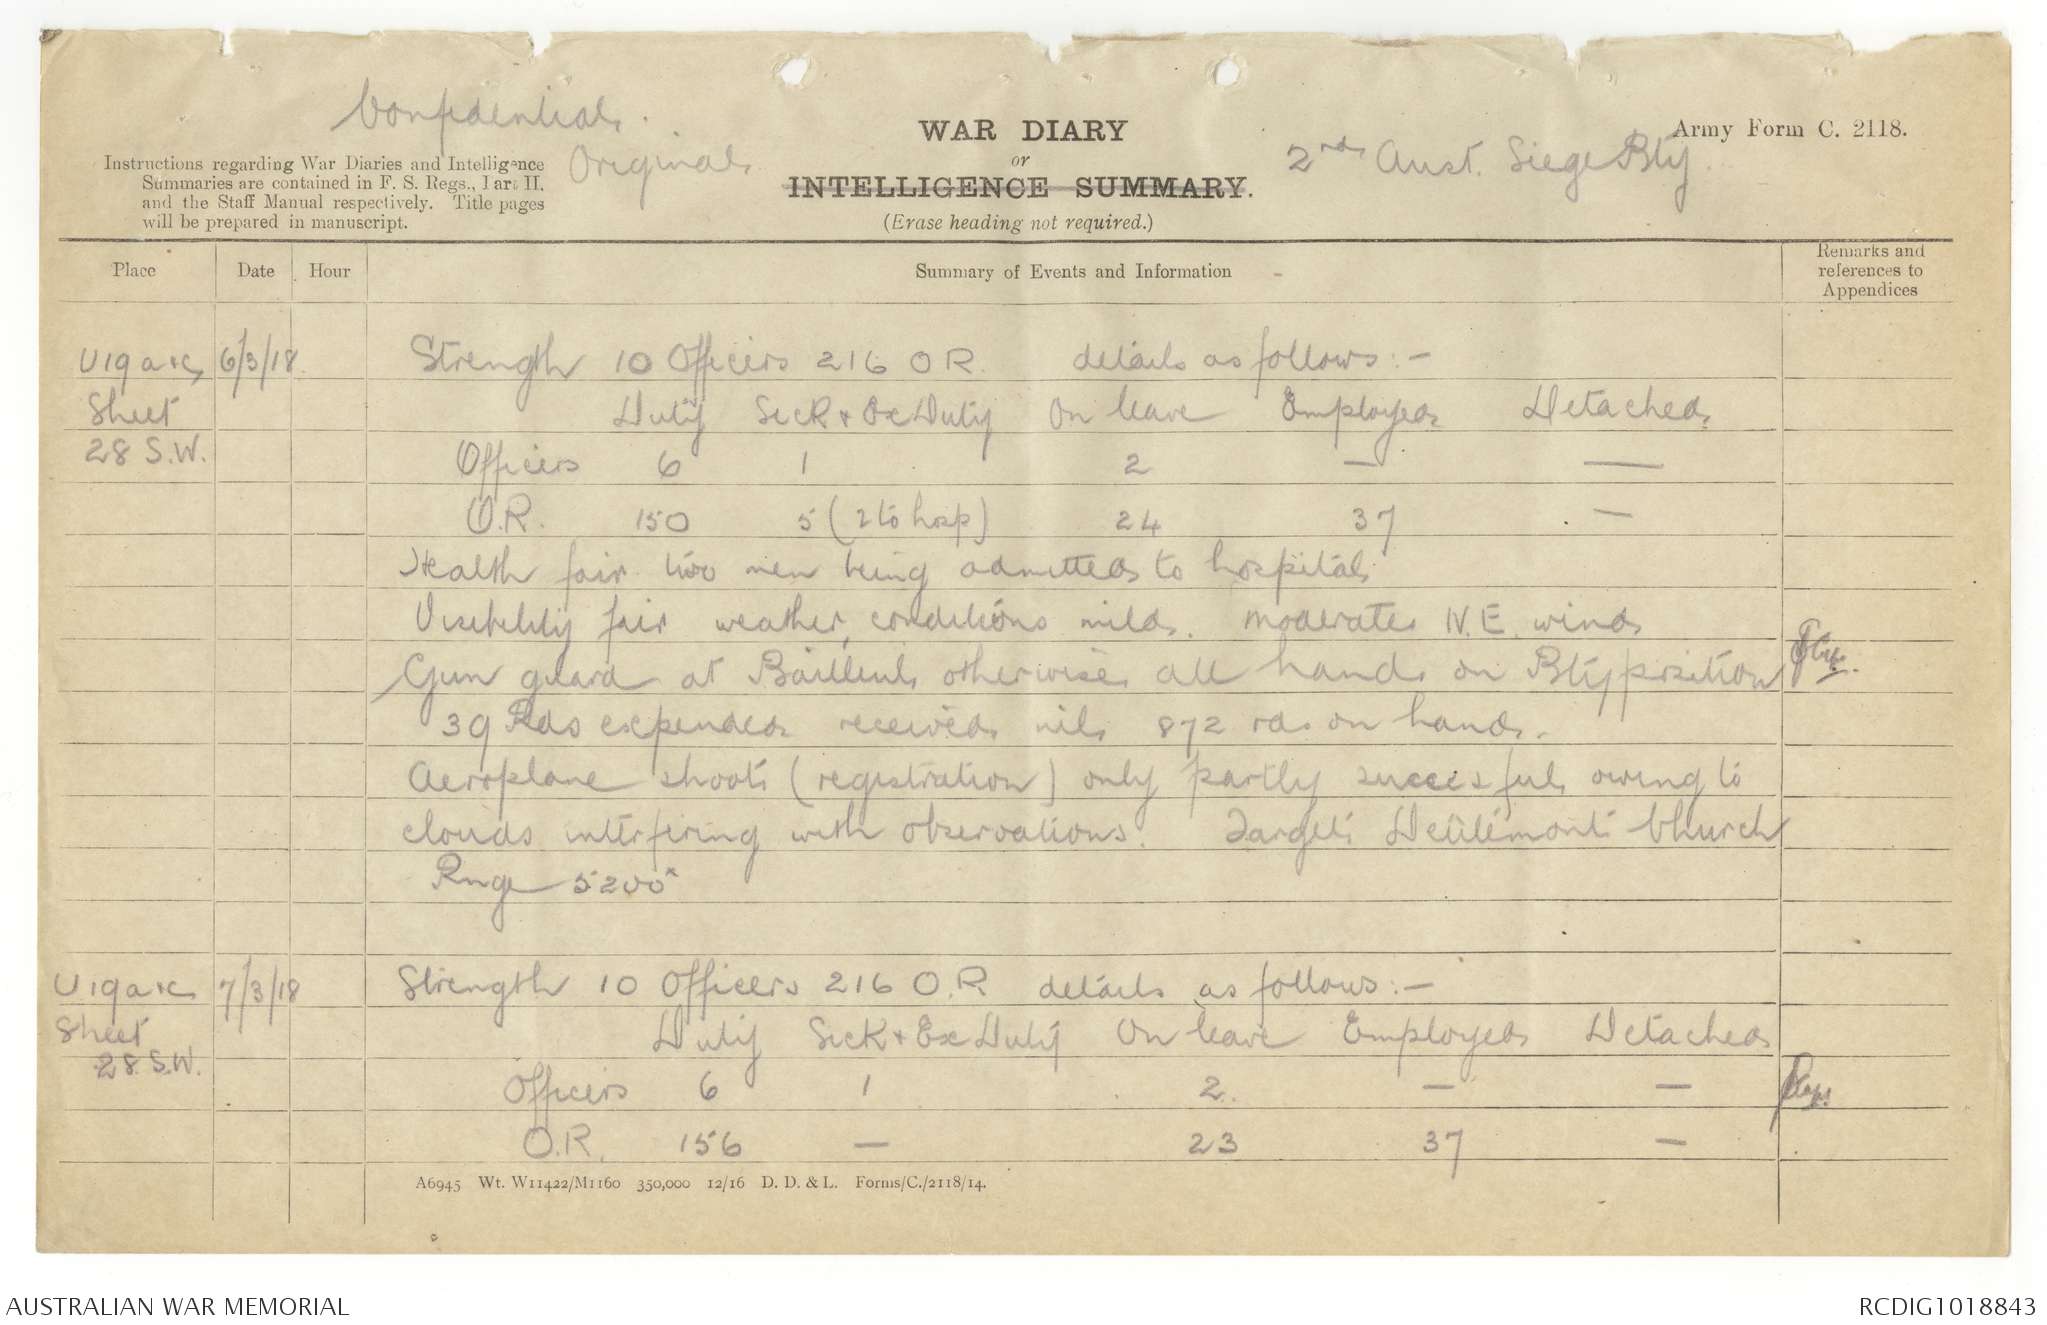 Confidential.
Original
WAR DIARY
or
INTELLIGENCE SUMMARY.
(Erase heading not required.)
2nd Aust. Siege Bty
Army Form C. 2118.
Instructions regarding War Diaries and Intelligence
Summaries are contained in F. S. Regs., Part II.
and the Staff Manual respectively. Title pages
will be prepared in manuscript.
Place Date Hour Summary of Events and Information Remarks and
references to
Appendices
U19a+c 6/3/18 Strength 10 Officers 216 O R. details as follows:-
Sheet Duty Sick + Ex Duty On leave Employed Detached
28 S.W. Officers 6 1 2 — —
O.R. 150 5 (2 to hosp) 24 37 —
Health fair two men being admitted to hospital
Visibility fair weather conditions mild. moderate N.E. wind
Gun guard at Bailleul otherwise all hands on Bty position
39 Rds expended received nil 872 rds on hand.
Aeroplane shoot (registration) only partly successful owing to
clouds interfering with observations. Target Deûlémont Church
Rnge 5200x
U19a+c 7/3/18 Strength 10 Officers 216 O.R. details as follows:-
Sheet Duty Sick + Ex Duty On leave Employed Detached
28 S.W. Officers 6 1 2. — —
O.R. 156 — 23 37 —
A6945 Wt. W11422/M1160 350,000 12/16 D. D. & L. Forms/C./2118/14.
AUSTRALIAN WAR MEMORIAL
RCDIG1018843